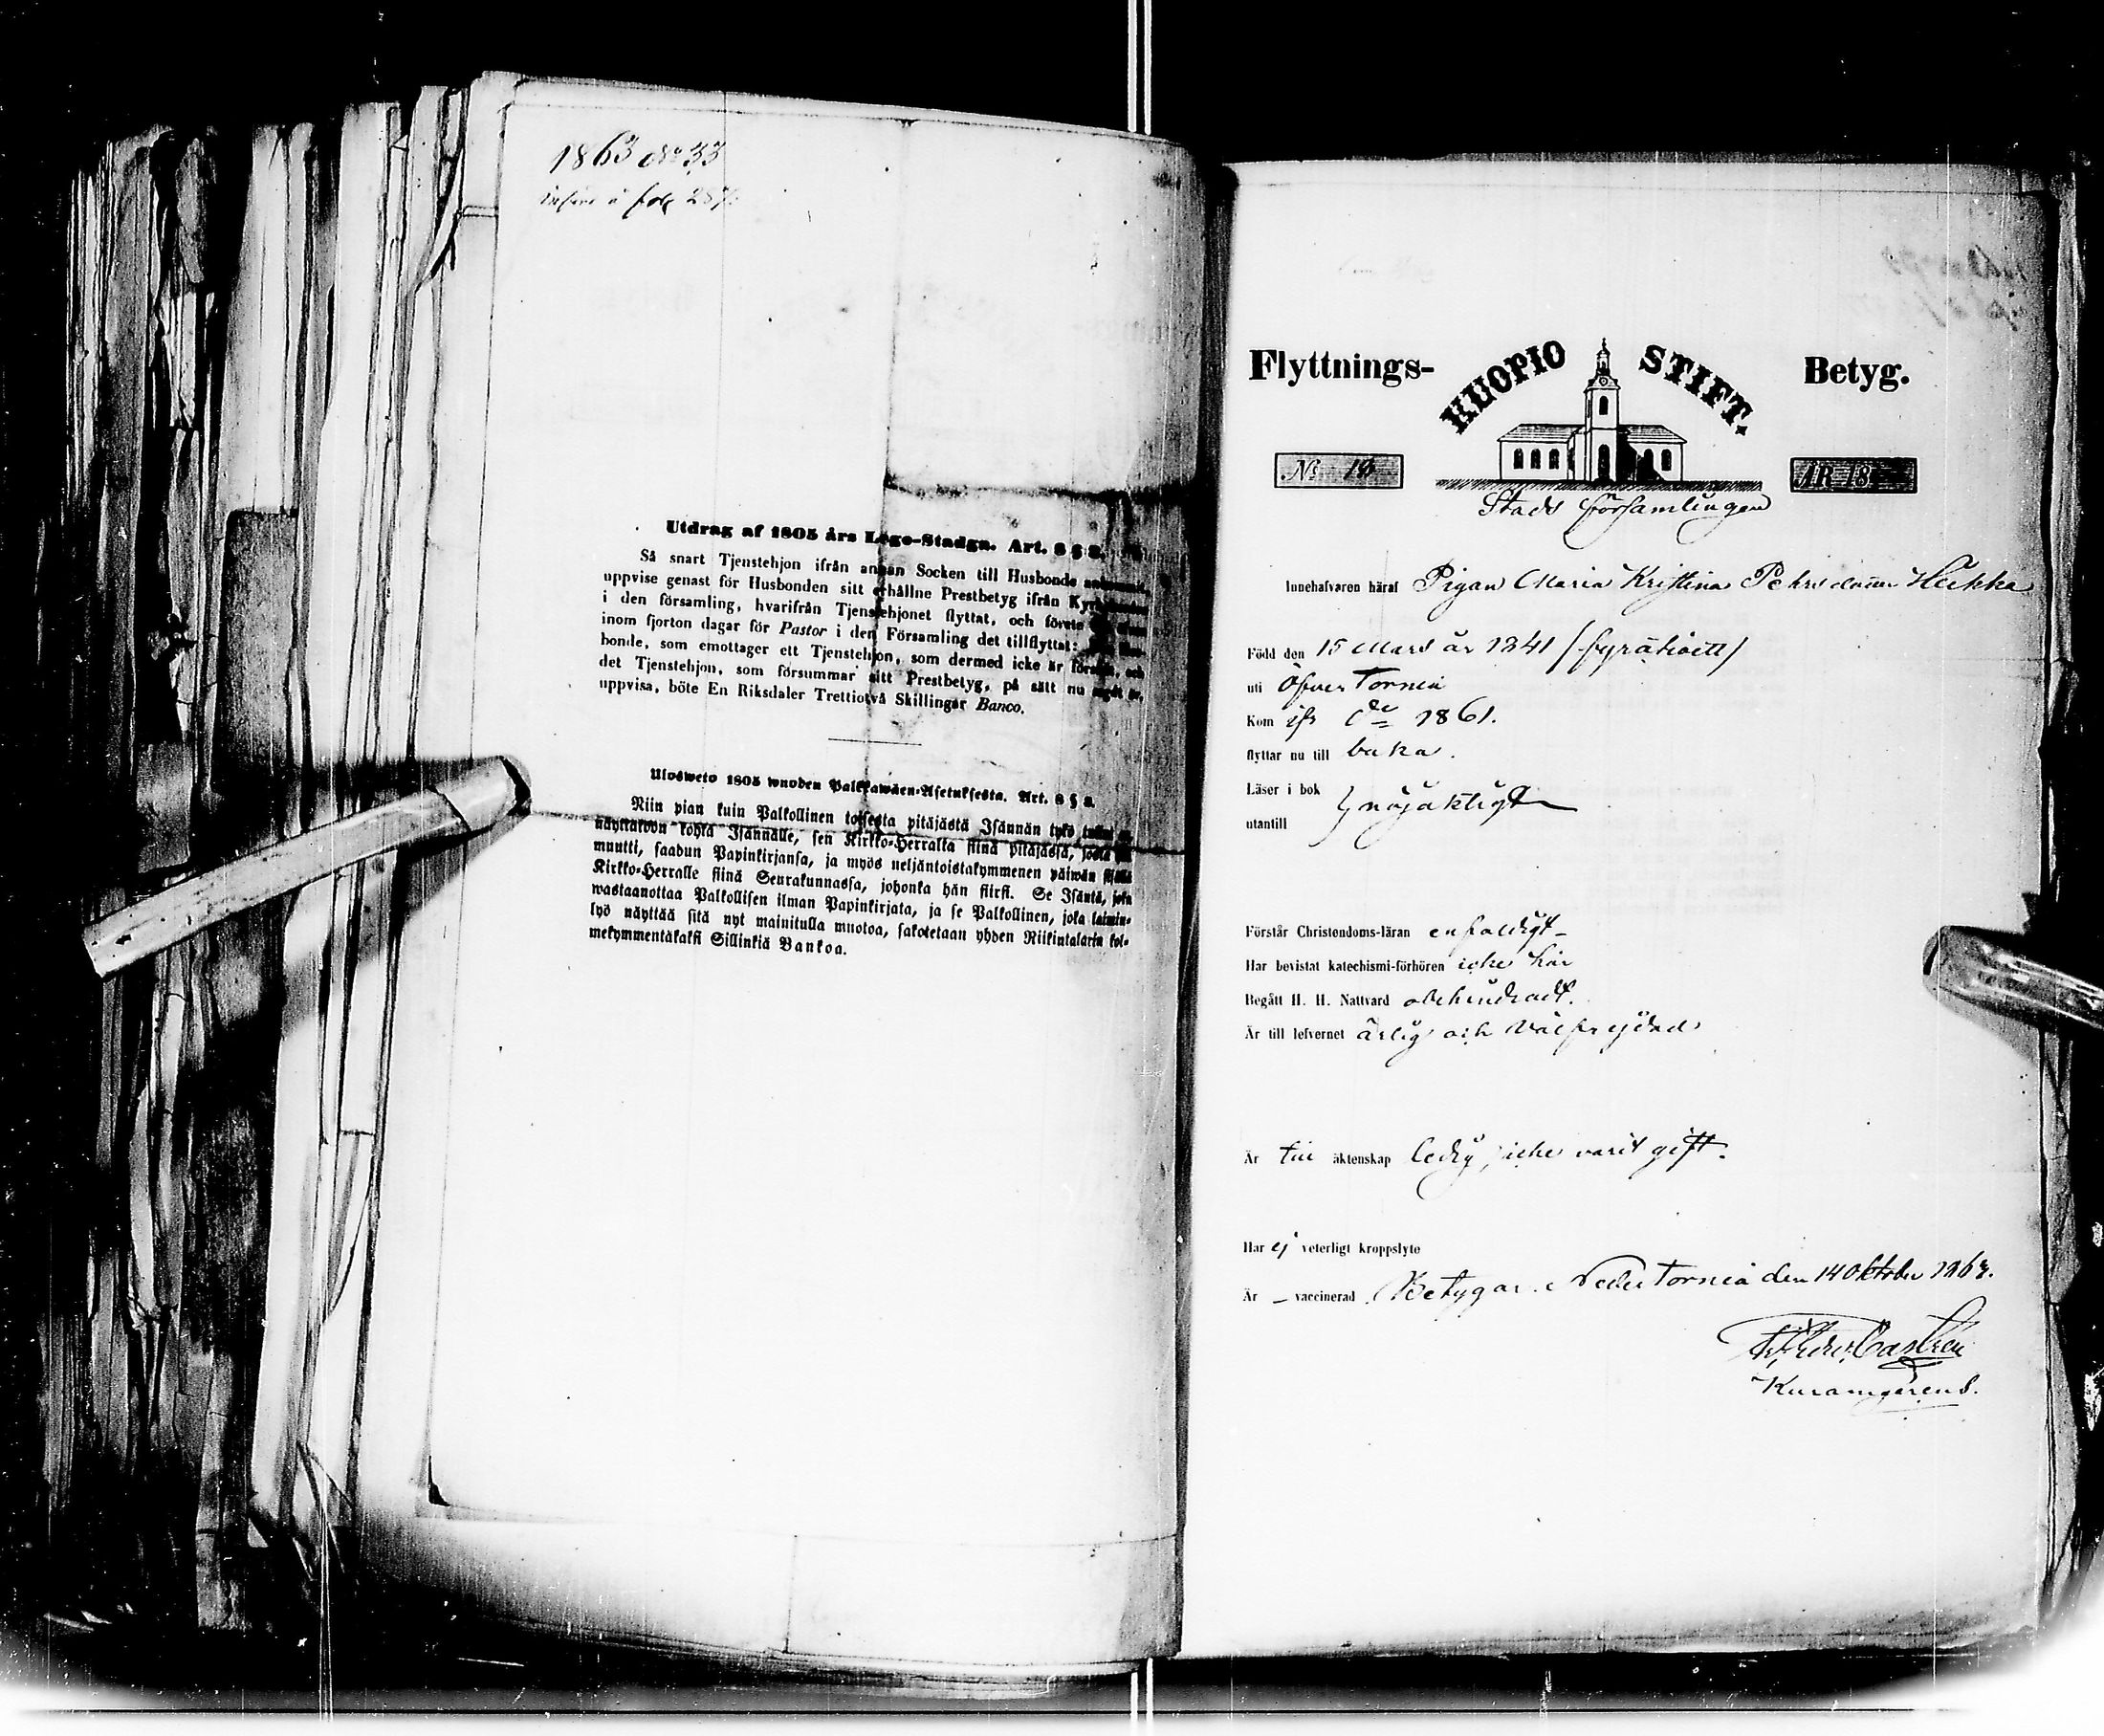 1863 No 33
införd å fol 287.
Utdrag af 1805 års Lego-Stadga. Art. 8 § 8.
Så snart Tjenstehjon ifrån annan Socken till Husbonde ankommit,
uppvise genast för Husbonden sitt erhållne Prestbetyg ifrån
i den församling, hvarifrån Tjenstehjonet flyttat, och förete
inom fjorton dagar för Pastor i den Församling det tillflyttat:
bonde, som emottager ett Tjenstehjon, som dermed icke är försedt, och
det Tjenstehjon, som försummar sitt Prestbetyg, på sätt nu sagdt är,
uppvisa, böte En Riksdaler Trettiotvå Skillingar Banco.
Ulosweto 1805 wuoden Palkkawäen-Asetuksesta. Art. 8 § 8.
Niin pian kuin Palkollinen toisesta pitäjästä Isännän tykö
näyttäkööt kohta Isännälle, sen Kirkko-Herralta siinä pitäjässä, josta
muutti, saadun Papinkirjansa, ja myös neljäntoistakymmenen päiwän sisällä
Kirkko-Herralle siinä Seurakunnassa, johonka hän siirsi. Se Isäntä, joka
wastaanottaa Palkollisen ilman Papinkirjata, ja se Palkollinen, joka laimin-
lyö näyttää sitä nyt mainitulla muotoa, sakotetaan yhden Riikintalarin kol-
mekymmentäkaksi Sillinkiä Bankoa.
Flyttnings- KUOPIO STIFT. Betyg.
No 18 ÅR 18
Stads församlingen
Innehafvaren häraf Pigan Maria Kristina Pehrsdotter Heikka
Född den 15 Mars år 1841 /fyratioett/
uti Öfver Torneå
Kom ifr 1861.
flyttar nu till baka.
Läser i bok
nöjaktigt
utantill
Förstår Christendoms-läran enfaldigt
Har bevistat katechismi-förhören icke här
Begått H. H. Nattvard obehindradt.
Är till lefvernet ärlig och välfrejdad
Är till äktenskap ledig, icke varit gift.
Har ej veterligt kroppslyte
Är – vaccinerad Betygar. Neder Torneå den 14 Oktober 1863.
Castrén